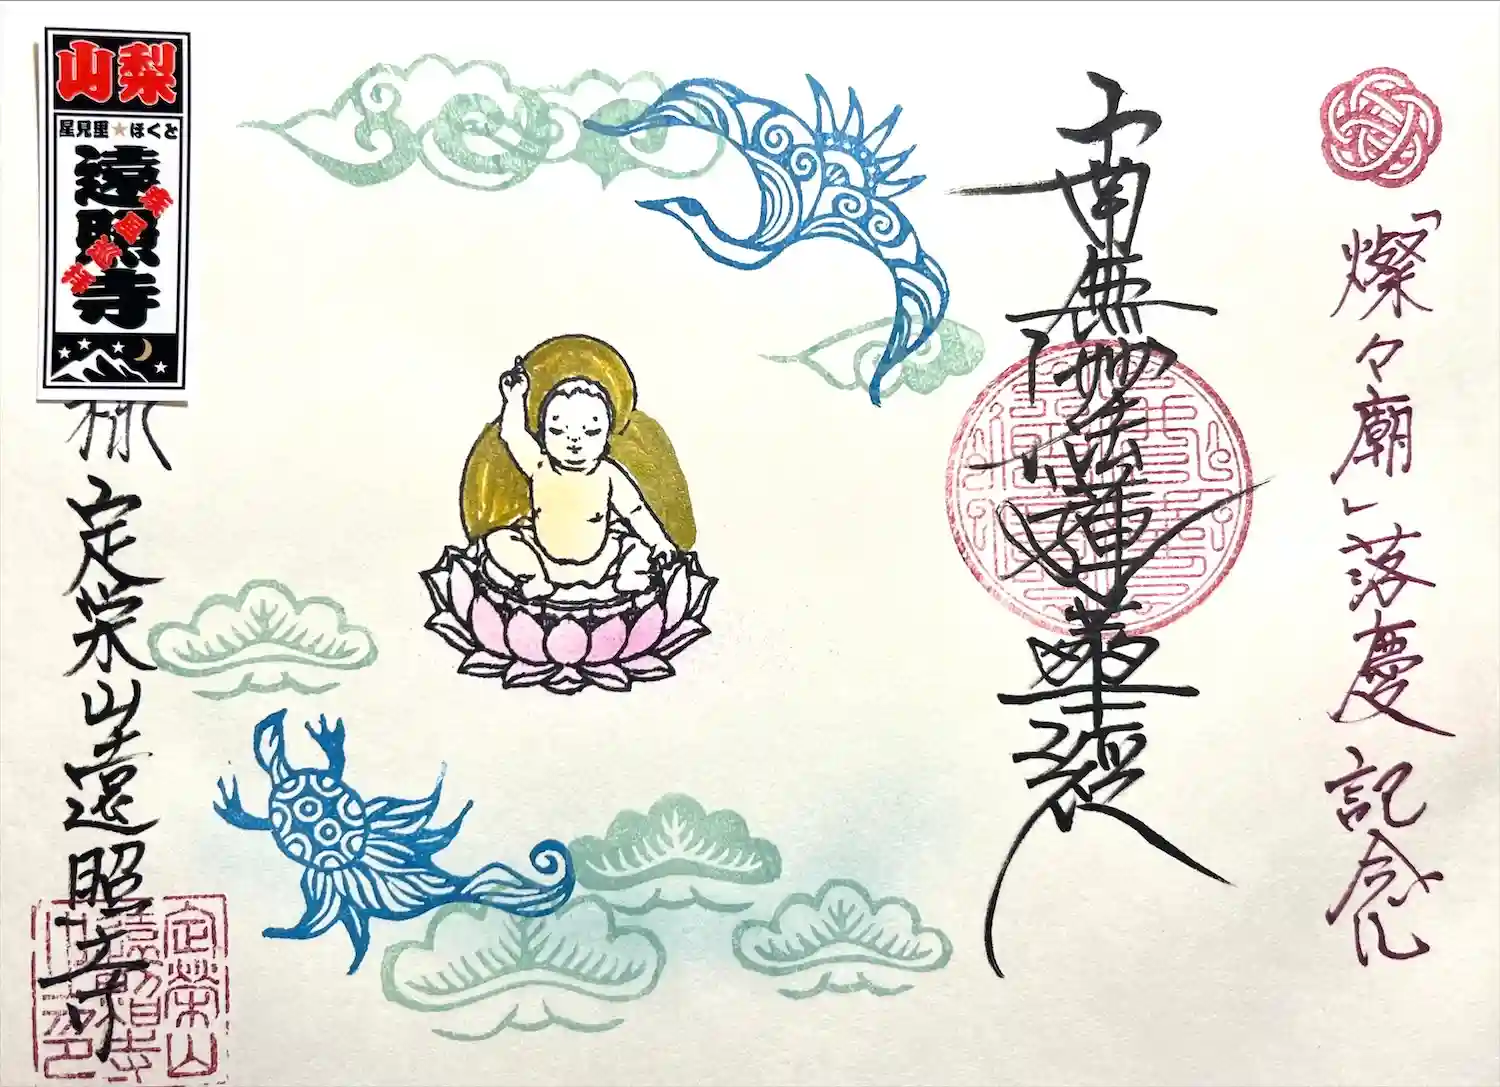 「燦々廟」落慶記念
南無妙法蓮華経
山梨
星見里★ほくと
遠照寺
定栄山遠照寺
定榮山